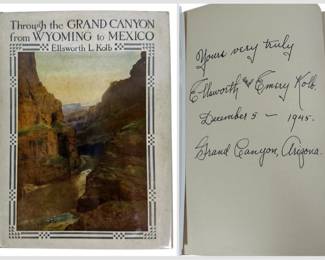 Through the GRAND CANYON
from WYOMING to MEXICO
Ellsworth L. Kolb
Yours very truly
Ellsworth and Emery Kolb.
December 5 – 1945.
Grand Canyon, Arizona.